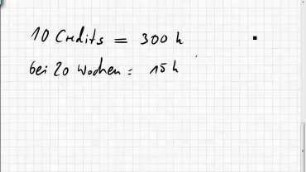 10 Credits = 300 h
bei 20 Wochen = 15 h